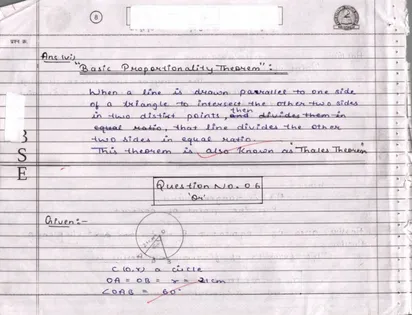 8
Ans. (vi)
"Basic Proportionality Theorem":-
When a line is drawn parrallel to one side
of a triangle to intersect the other two sides
in two distict points, then and divides them in
equal ratio, that line divides the other
two sides in equal ratio.
This theorem is also known as "Thales Theorem"
B
S
E
Question No. 06
'Or'
Given:-
C (O, r) a circle
OA = OB = r = 21 cm
∠OAB = 60°